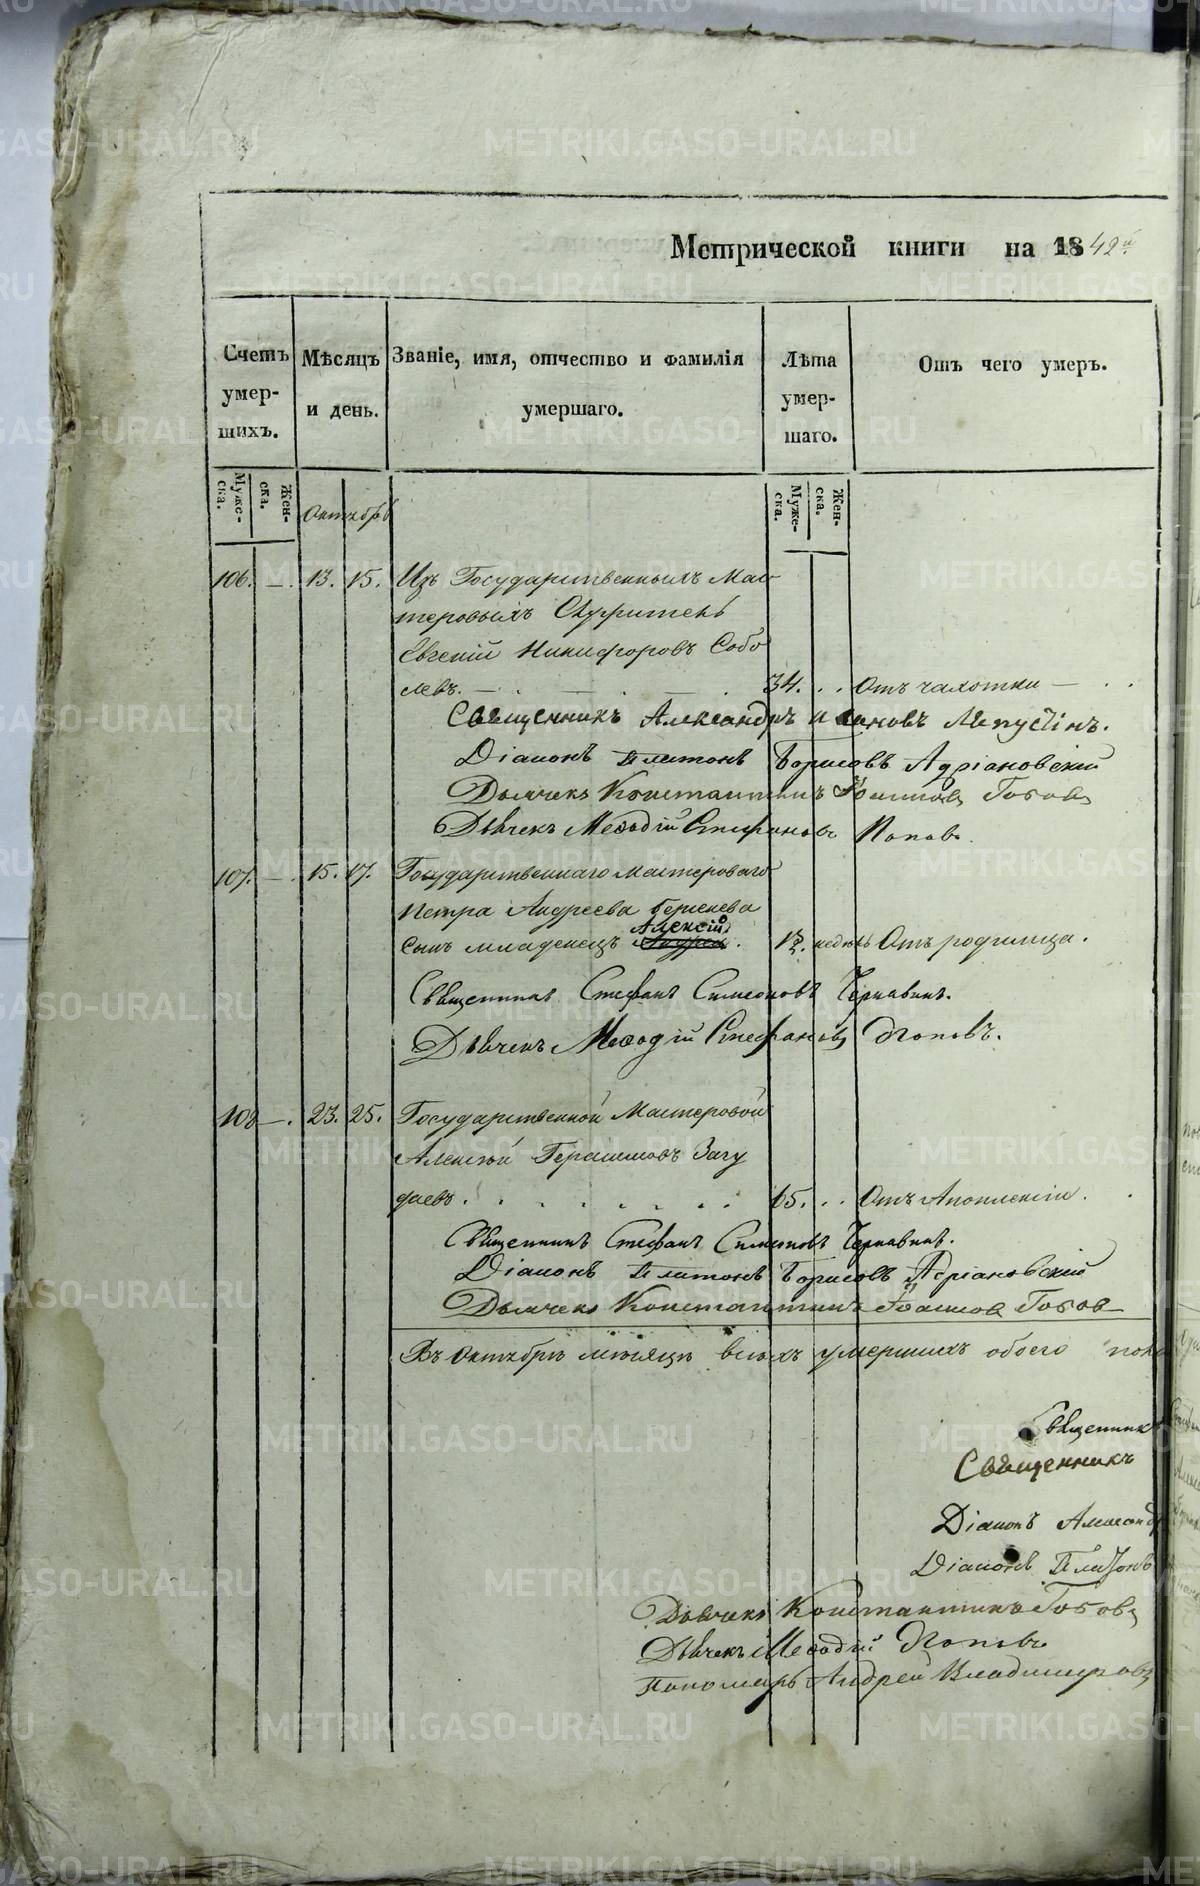 Метрической книги на 1842й
Счетъ умер-шихъ.
Мѣсяцъ и день.
Званіе, имя, отчество и фамилія умершаго.
Лѣта умер-шаго.
Отъ чего умеръ.
Муже-ска.
Жен-ска.
Октябрь
Муже-ска.
Жен-ска.
106. — 13. 15. Изъ Государственныхъ Мас
теровыхъ
Евгеній Никифоровъ Собо
левъ. 34. Отъ чахотки
Священникъ Александръ
Діаконъ Платонъ Борисовъ Адріановскій
Дьячекъ Константинъ Іоанновъ
Дьячекъ Меѳодій Стефановъ Поповъ.
107. — 15. 17. Государственнаго мастероваго
Петра Андреева
Алексій
сынъ младенецъ Андрей. недѣль Отъ родимца.
Священникъ Стефанъ Симеоновъ Чернавинъ.
Дьячекъ Меѳодій Стефановъ Поповъ.
108 — 23. 25. Государственной Мастеровой
Алексѣй Герасимовъ Загу
даевъ. 65. Отъ Апоплексіи.
Священникъ Стефанъ Симеоновъ Чернавинъ.
Діаконъ Платонъ Борисовъ Адріановскій
Дьячекъ Константинъ Іоанновъ
Въ Октябрѣ мѣсяцѣ всѣхъ умершихъ обоего пола
Священникъ
Священникъ
Діаконъ Александръ
Діаконъ Платонъ
Дьячекъ Константинъ
Дьячекъ Меѳодій Поповъ.
Пономарь Андрей Владимировъ
METRIKI.GASO-URAL.RU